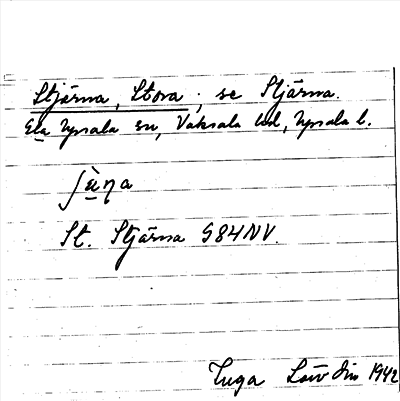 Stjärna, Stora; se Stjärna.
Gla Upsala sn, Vaksala hd, Upsala l.
St. Stjärna G84NV.
Inga Löv din 1942